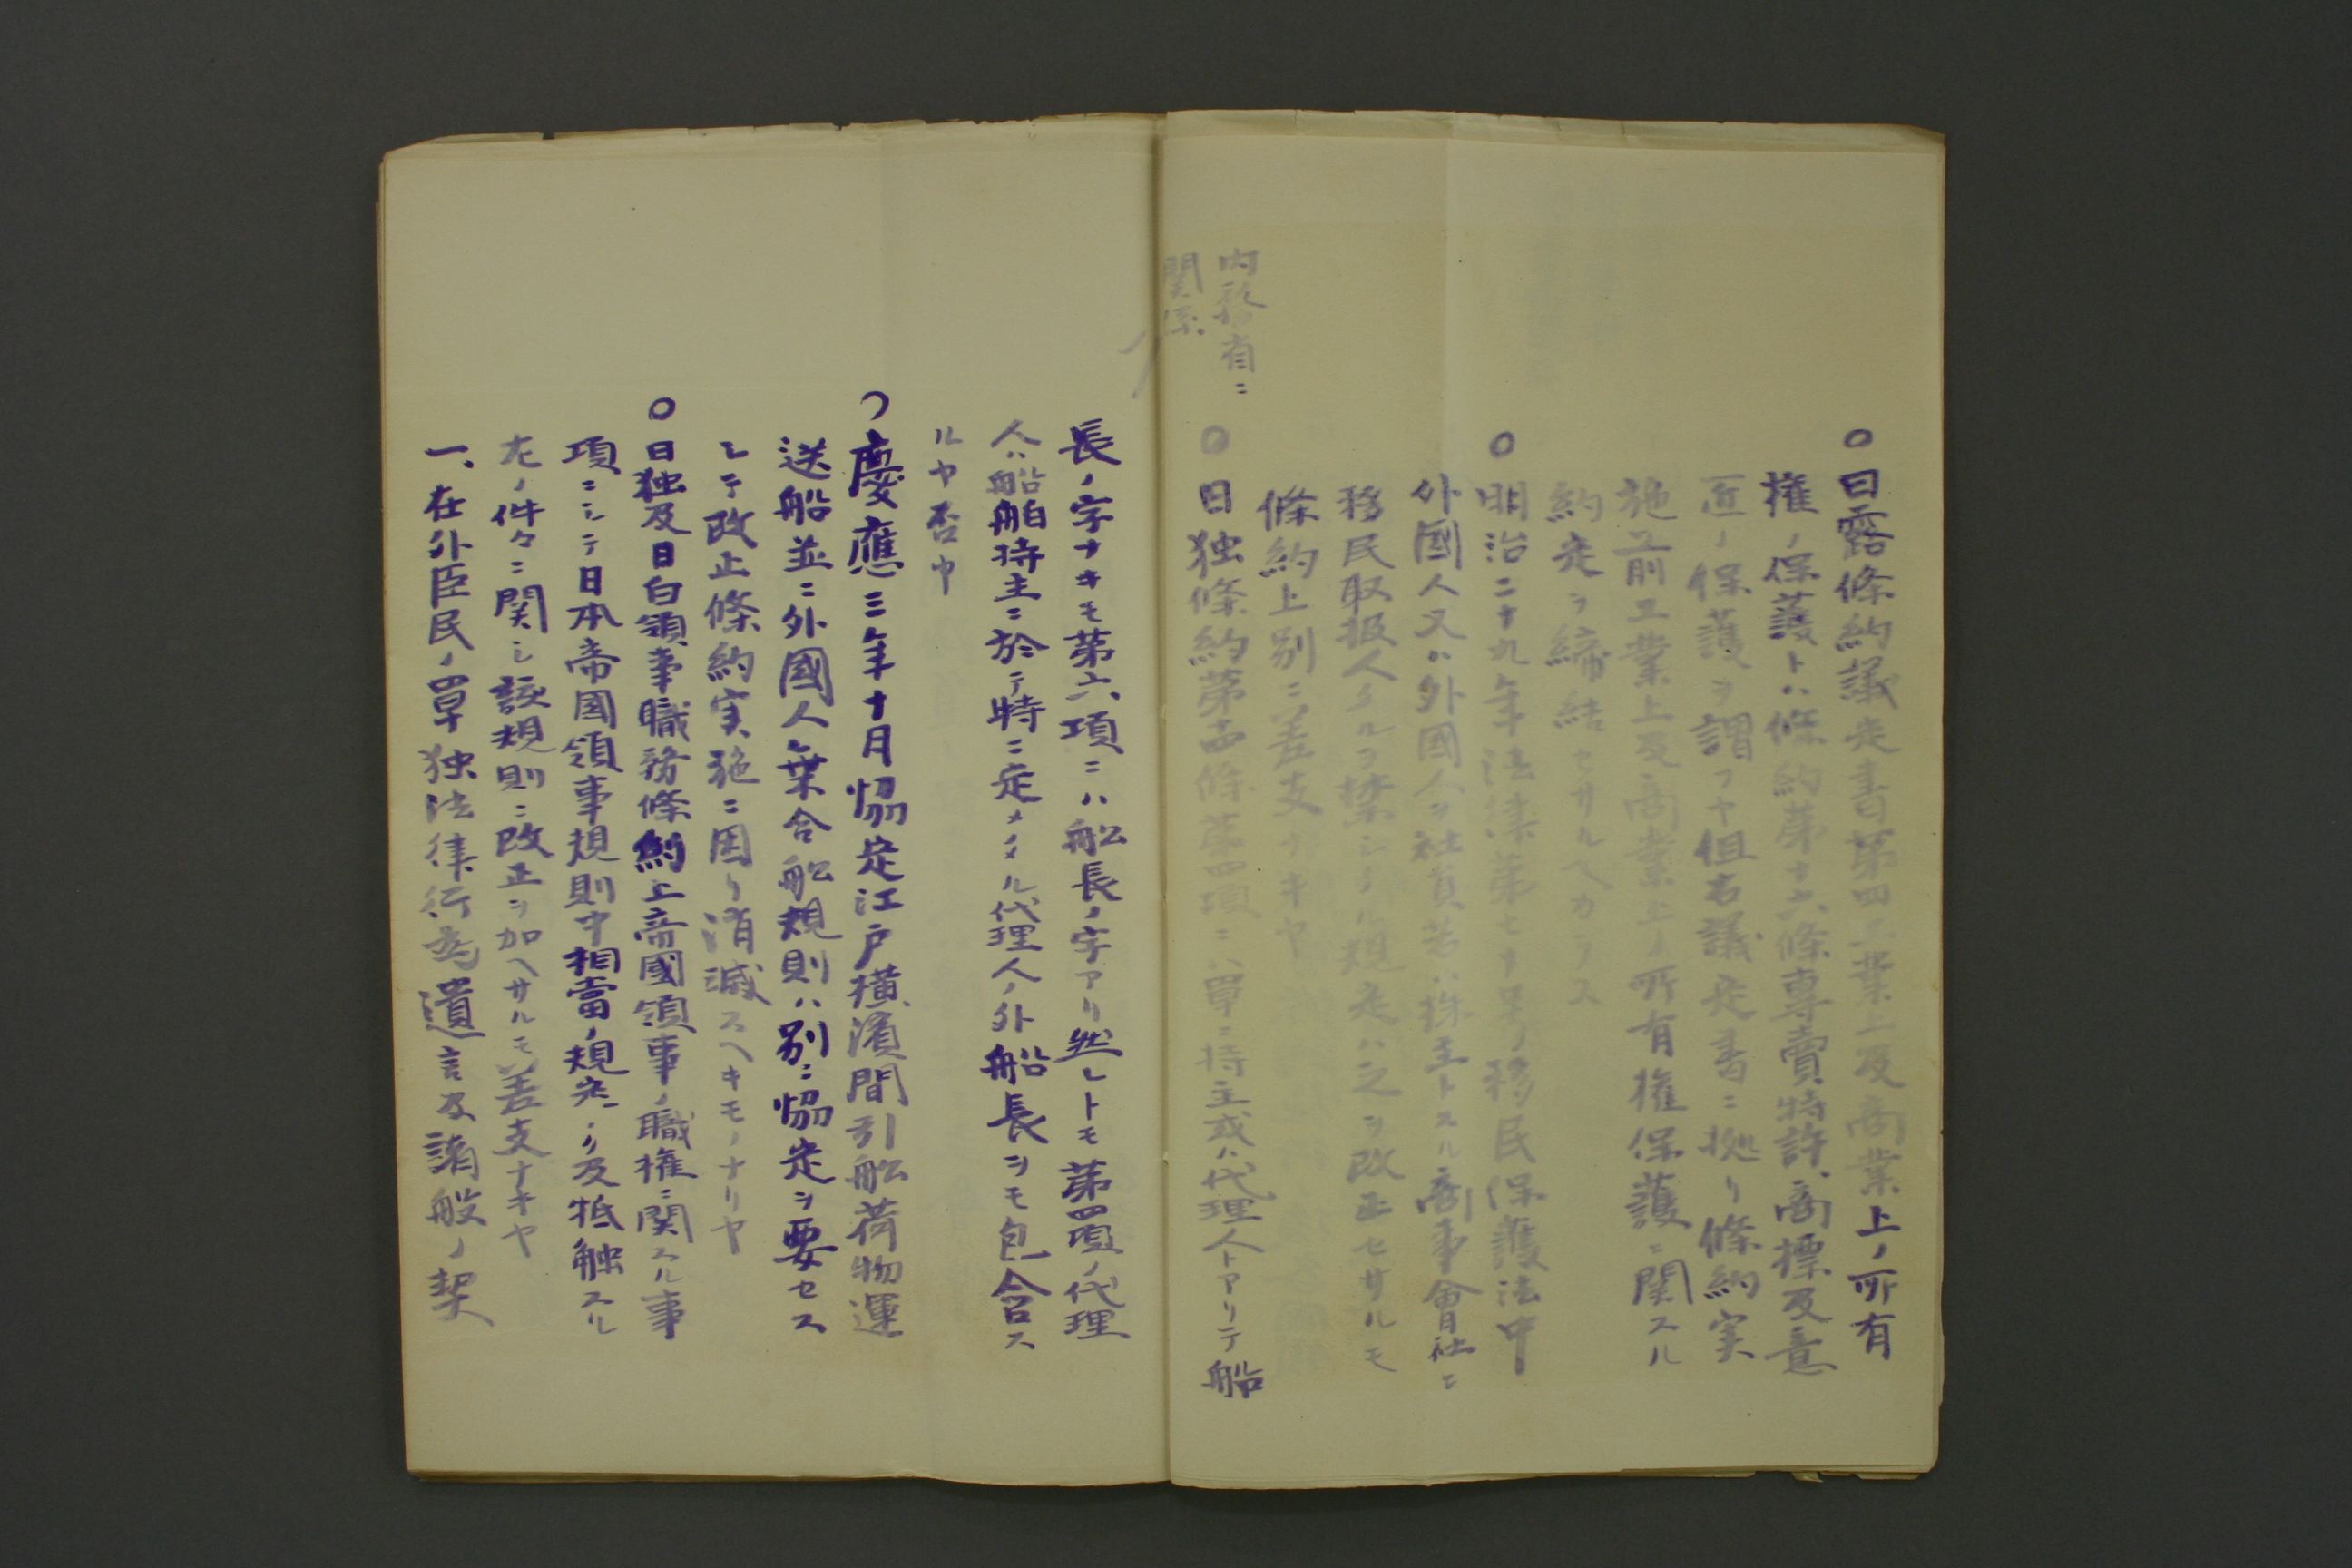 ○日露條約議定書第四工業上及商業上ノ所有
権ノ保護トハ條約第十六條専賣特許、商標及意
匠ノ保護ヲ謂フヤ但右議定書ニ拠リ條約実
施前工業上及商業上ノ所有権保護ニ関スル
約定ヲ締結セサルヘカラス
○明治二十九年法律第七十号ノ移民保護法中
外國人又ハ外國人ヲ社員若ハ株主トスル商事會社ニ
移民取扱人タルヲ禁シタル規定ハ之ヲ改正セサルモ
條約上別ニ差支ナキヤ
内務省ニ
関係
○日独條約第十四條第四項ニハ單ニ持主或ハ代理人トアリテ船
長ノ字ナキモ第六項ニハ船長ノ字アリ然レトモ第四項ノ代理
人ハ船舶持主ニ於テ特ニ定メタル代理人ノ外船長ヲモ包含ス
ルヤ否や
○慶應三年十月協定江戸横濱間引船荷物運
送船並ニ外國人乗合船規則ハ別ニ協定ヲ要セス
シテ改正條約実施ニ因リ消滅スヘキモノナリヤ
○日独及日白領事職務條約上帝國領事ノ職権ニ関スル事
項ニシテ日本帝國領事規則中相當ノ規定ナリ及牴触スル
左ノ件々ニ関シ該規則ニ改正ヲ加ヘサルモ差支ナキヤ
一、在外臣民ノ單独法律行為遺言及諸般ノ契